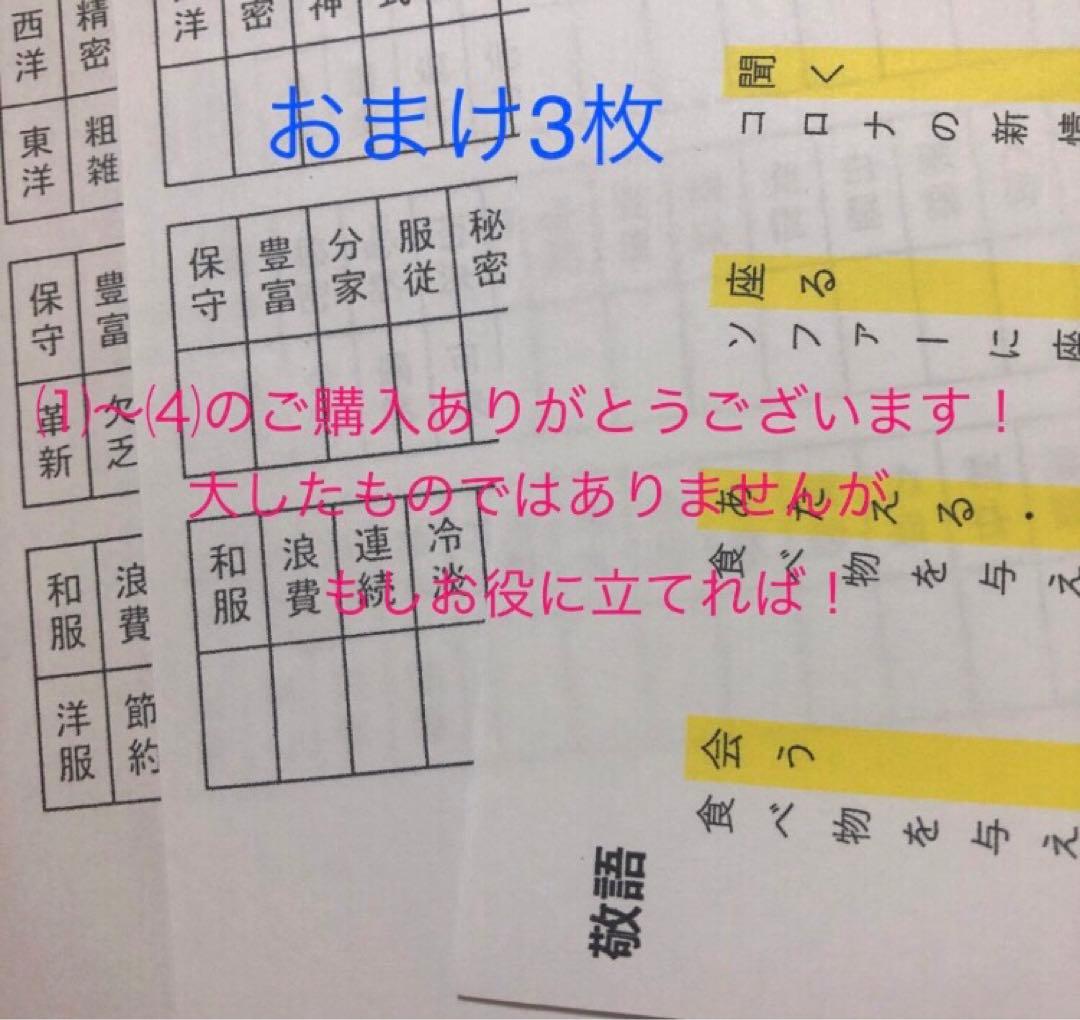 おまけ3枚
⑴〜⑷のご購入ありがとうございます！
大したものではありませんが
もしお役に立てれば！
西洋
精密
東洋
粗雑
保守
豊富
革新
欠乏
和服
浪費
洋服
節約
洋
密
神
保守
豊富
分家
服従
秘密
和服
浪費
連続
冷淡
聞く
コロナの新情
座る
ソファーに座
あたえる・
食べ物を与え
会う
食べ物を与え
敬語